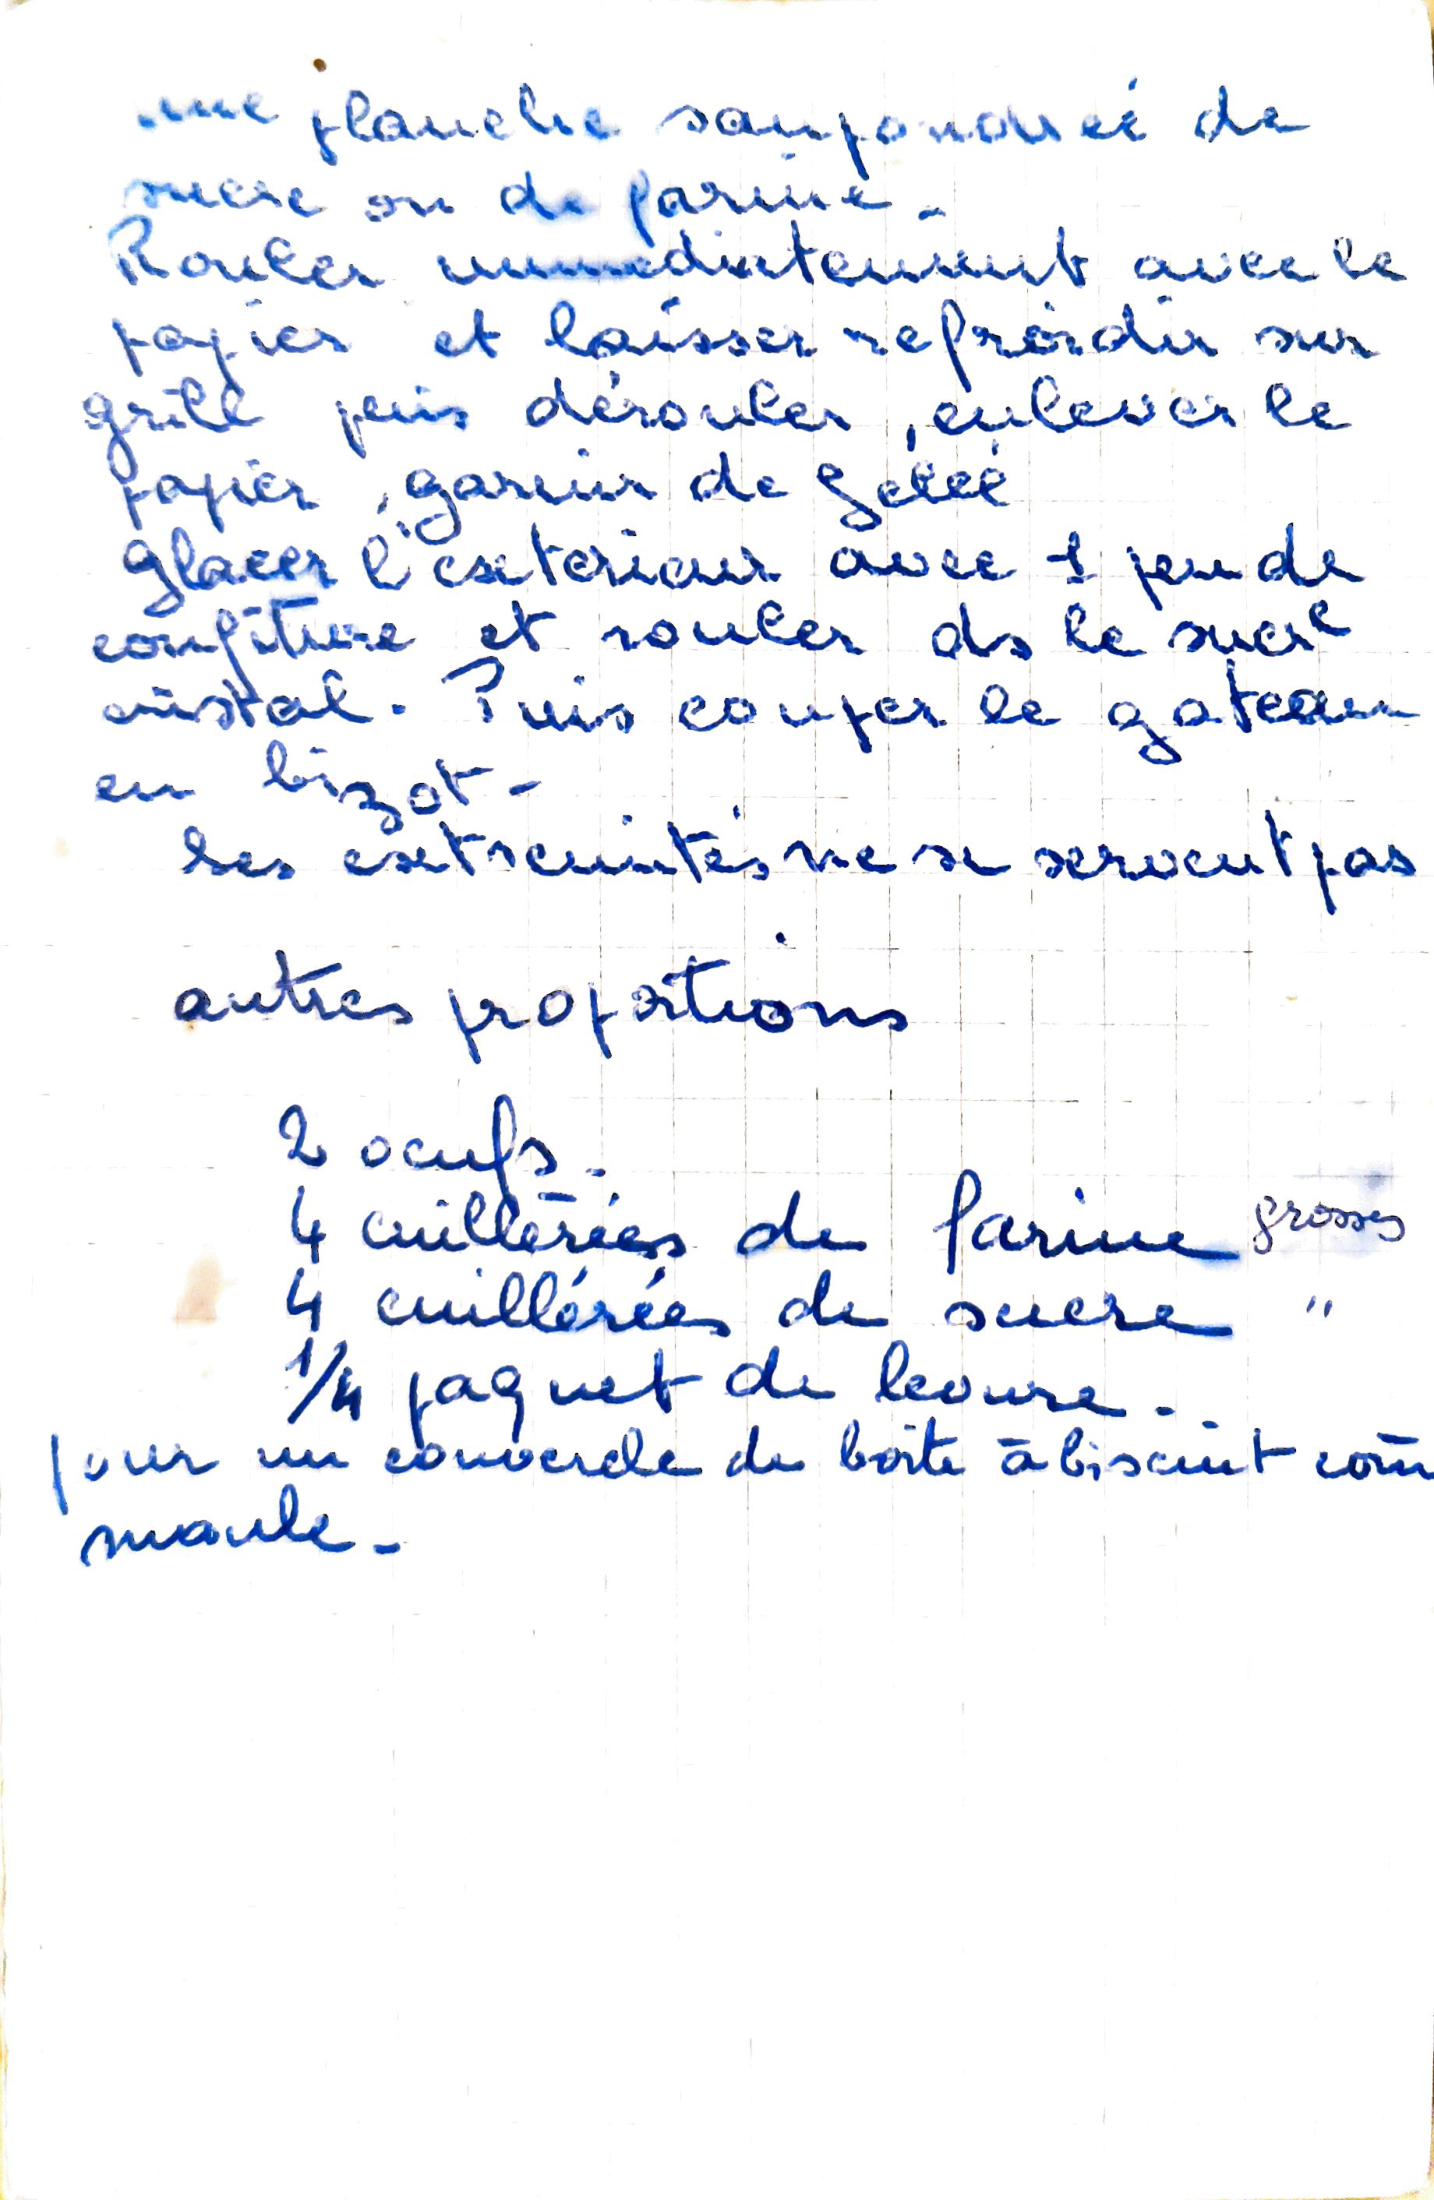 une planche saupoudrée de
sucre ou de farine.
Rouler immediatement avec le
papier et laisser refroidir sur
grille puis dérouler, enlever le
papier, garnir de gelée
Glacer l'exterieur avec 1 peu de
confiture et rouler ds le sucre
cristal. Puis couper le gateau
en bizot -
Les extremités ne se servent pas
autres proportions
2 oeufs.
4 cuillerées de farine grosses
4 cuillérées de sucre "
1/4 paquet de levure.
pour un couvercle de boite à biscuit com
moule -